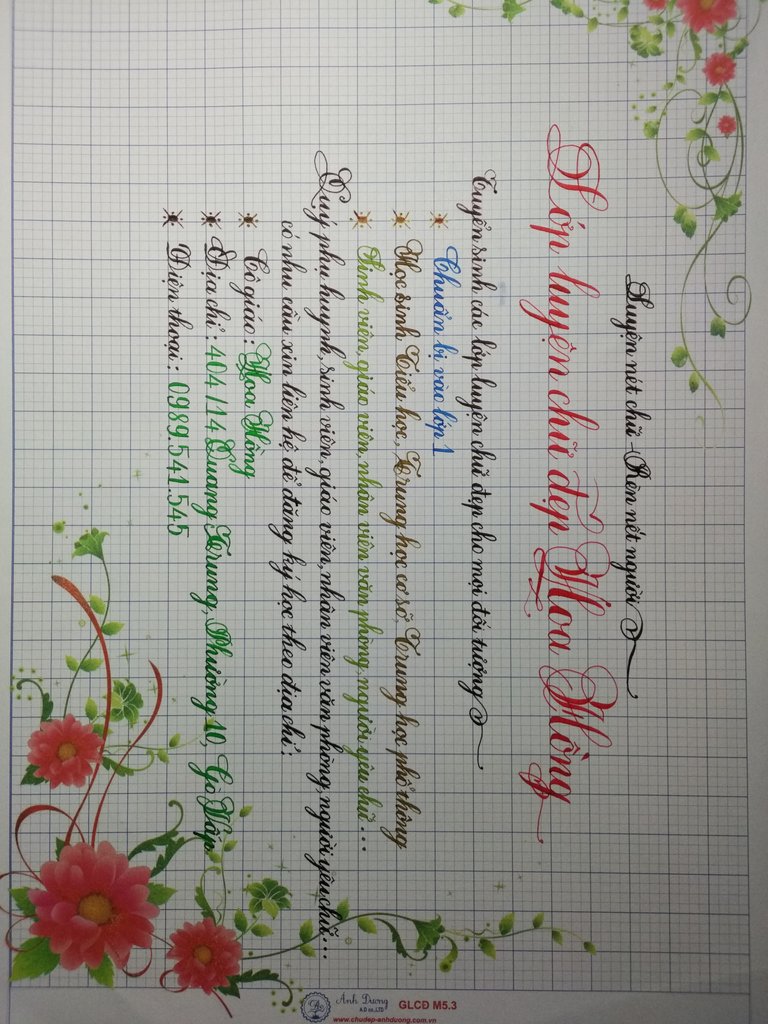 Luyện nét chữ - Rèn nết người
Lớp luyện chữ đẹp Hoa Hồng
Tuyển sinh các lớp luyện chữ đẹp cho mọi đối tượng
Chuẩn bị vào lớp 1
Học sinh Tiểu học, Trung học cơ sở, Trung học phổ thông
Sinh viên, giáo viên, nhân viên văn phòng, người yêu chữ ...
Quý phụ huynh, sinh viên, giáo viên, nhân viên văn phòng, người yêu chữ ...
có nhu cầu xin liên hệ để đăng ký học theo địa chỉ:
Cô giáo: Hoa Hồng
Địa chỉ: 404/14 Quang Trung, Phường 10, Gò Vấp
Điện thoại: 0989.541.545
Anh Dương
A.D co.,LTD
GLCĐ M5.3
www.chudep-anhduong.com.vn